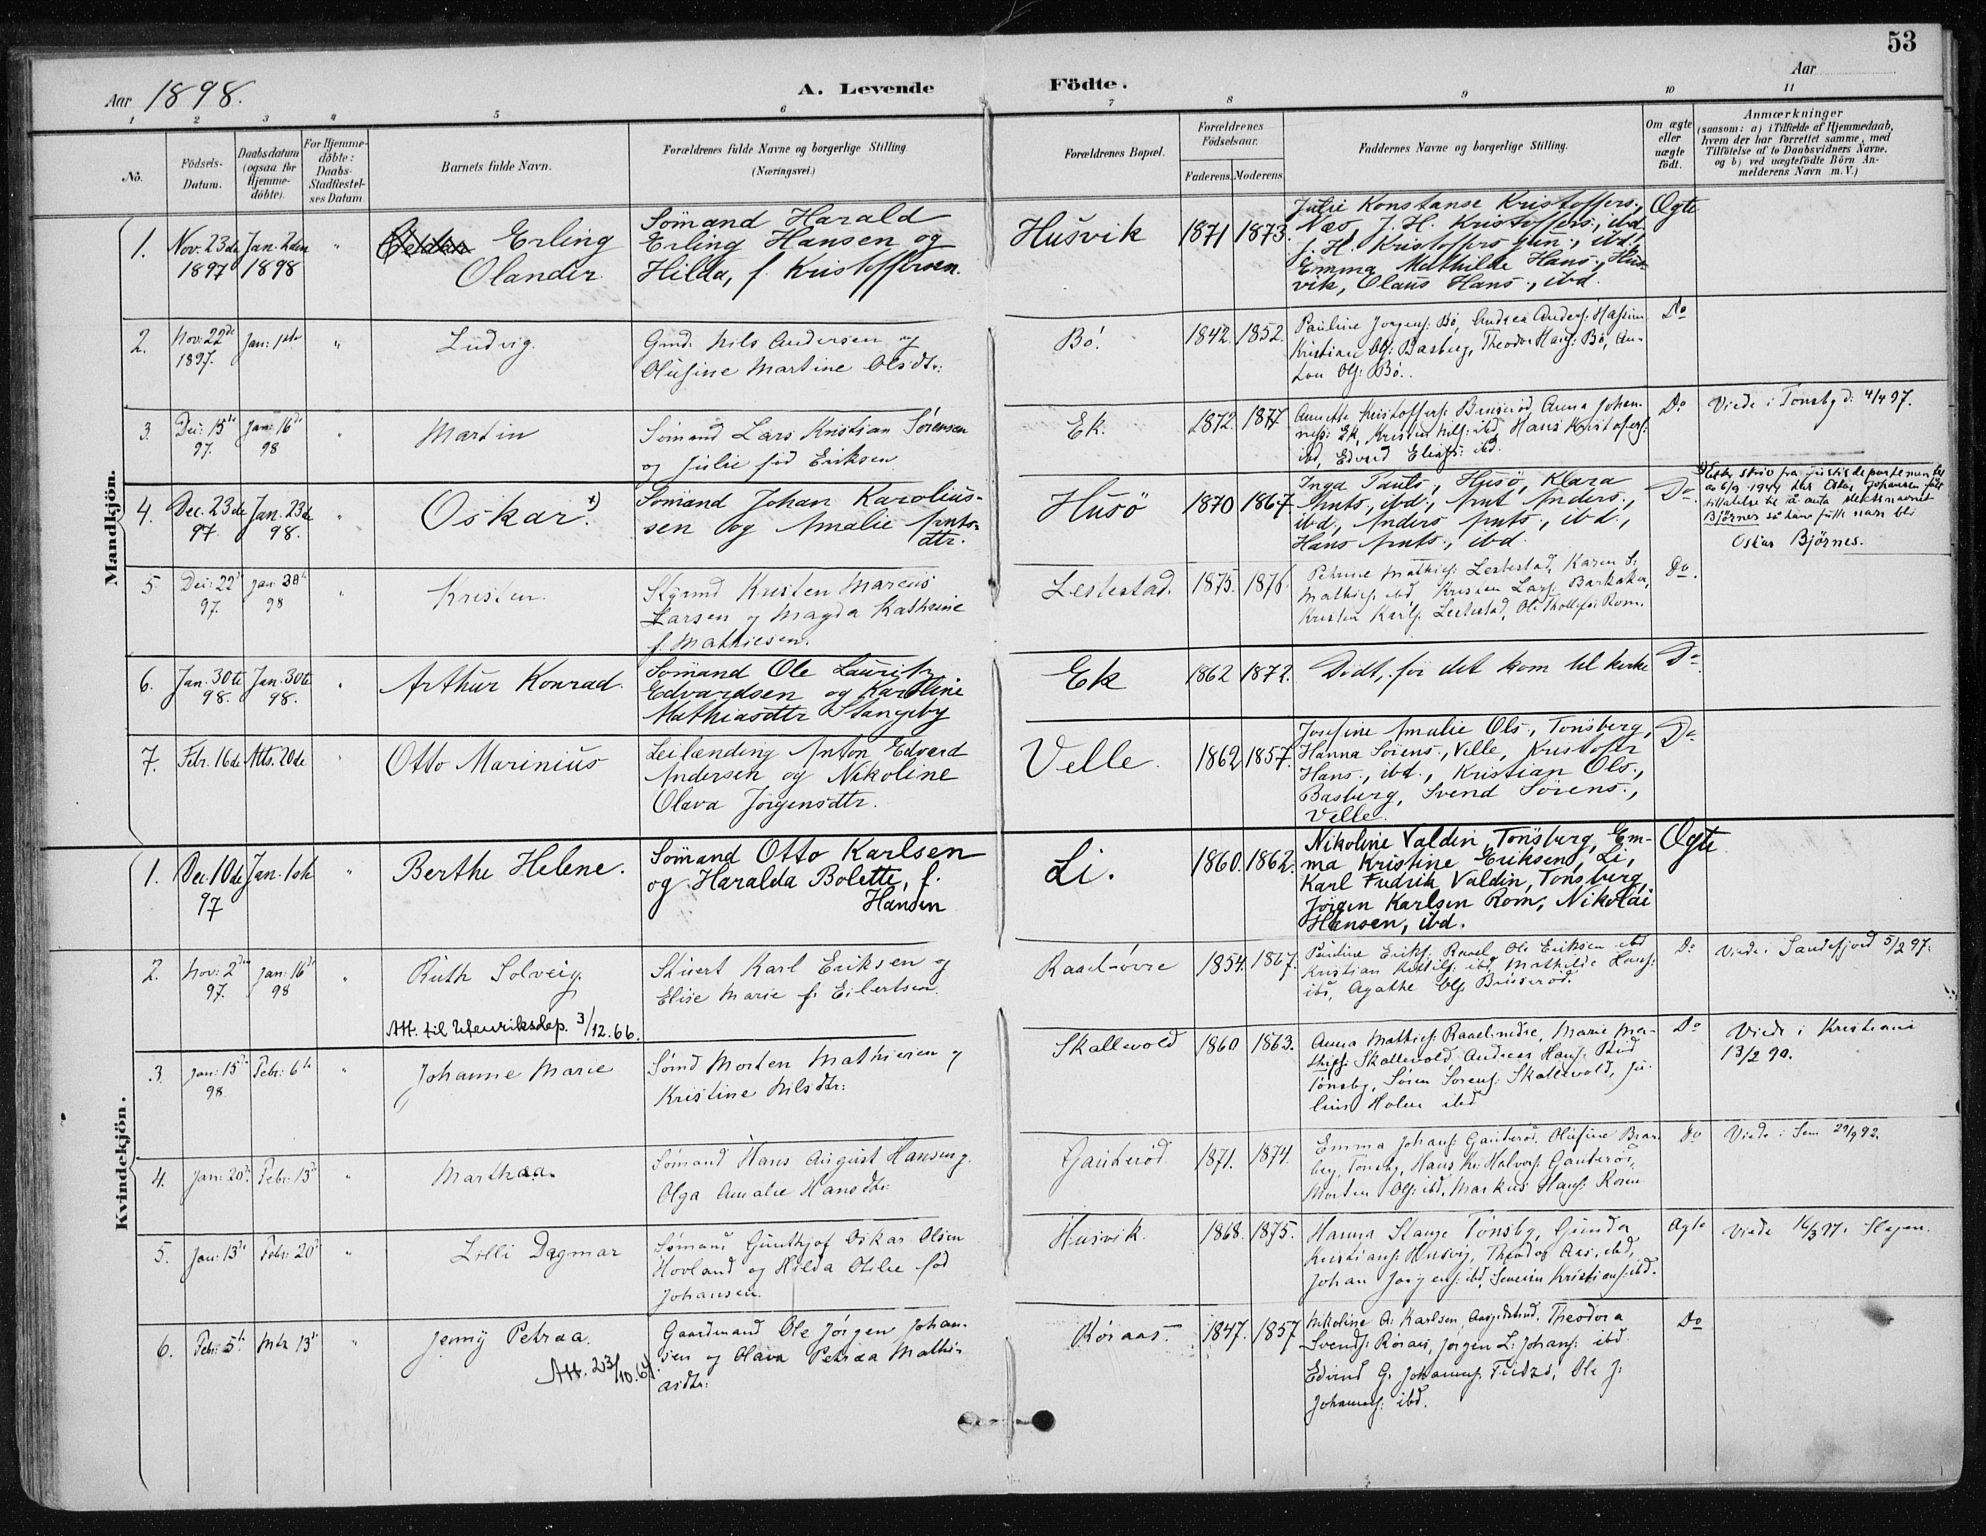 53
Aar 1898.
A. Levende Födte.
Aar
1 2 3 4 5 6 7 8 9 10 11
No.
Födsels-Datum.
Daabsdatum (ogsaa for Hjemme-döbte).
For Hjemme-döbte: Daabs-Stadfæstel-ses Datum
Barnets fulde Navn.
Forældrenes fulde Navne og borgerlige Stilling. (Næringsvei.)
Forældrenes Bopæl.
Forældrenes Födselsaar.
Faderens. Moderens.
Faddernes Navne og borgerlige Stilling.
Om ægte eller uægte födt.
Anmærkninger
(saasom: a) i Tilfælde af Hjemmedaab, hvem der har forrettet samme, med Tilföielse af to Daabsvidners Navne, og b) ved uægtefödte Börn An-melderens Navn m. V.)
Mandkjön.
1. Nov. 23de 1897 Jan. 2den 1898 " Erling Olander
Sömand Harald
Erling Hansen og
Hilda, f. Kristoffersen.
Husvik 1871 1873.
Julie Konstanse Kristoffers.,
Næs, J. H. Kristoffers., ibd.
J. H. Kristoffers jun., ibd.,
Emma Mathilde Hans., Hus-
vik, Olaus Hans., ibd.
Ægte
2. Nov: 22de 1897. Jan: 1ste " Ludvig.
Grnd. Nils Andersen og
Olufine Martine Olsdtr:
Bö. 1842. 1852.
Pauline Jorgens: Bö, Andrea Anders:
Kristian Ols: Basberg, Theodor Hans: Bö, An-
ton Ols: Bö.
Do
3. Dec: 15de 97. Jan: 16de 98 " Martin
Sömand Lars Kristian Sörensen
og Julie föd Eriksen
Ek. 1872. 1877
Annette Kristoffers: Brüseröd, Anna Johan-
nes: Ek, Kristen Nils: ibd, Hans Kristofers:
ibd, Edvard Elias: ibd.
Do
Viede i Tönsbg d: 4/4 97.
4. Dec. 23de 97 Jan. 23de 98. Oskar. x)
Sömand Johan Karolius-
sen og Amalie Arnts-
dtr.
Husö 1870 1867.
Inga Pauls., Husö, Klara
Arnts., ibd., Arnt Anders.,
ibd., Anders Arnts., ibd.,
Hans Arnts., ibd.
Do.
x) Efter skriv fra justisdepartementet
av 6/9 1944 har Oskar Johansen fått
tillatelse til å anta slektsnavnet
Björnes så hans fulle navn blir
Oskar Björnes.
5. Dec: 22de 97. Jan: 30te 98 " Kristen.
Kristen Marcus
Larsen og Magda Kathrine
f. Mathiesen.
Lestestad. 1875. 1876
Petrine Mathies: Lestestad, Karen S.
Mathies: ibd, Kristen Lars: Barkaker,
Kristen Karls: Lestestad, Ole Thollefs: Rom.
Do.
6. Jan. 30te 98. Jan. 30te 98. " Arthur Konrad.
Sömand Ole Laurits
Edvardsen og Karoline
Mathiasdtr Stangeby
Ek 1862 1872.
Dödt, för det kom til kirke
Do
7. Febr. 16de Mts. 20de " Otto Marinius
Leilænding Anton Edvard
Andersen og Nikoline
Olava Jörgensdtr.
Velle. 1862 1857.
Josefine Amalie Ols., Tönsberg,
Hanna Sörens., Velle, Kristofer
Hans., ibd., Kristian Ols.,
Basberg, Svend Sörens.,
Velle.
Do
Kvindekjön.
1. Dec. 10de 97 Jan. 1ste " Berthe Helene.
Sömand Otto Karlsen
og Haralda Bolette, f.
Hansen
Li. 1860. 1862.
Nikoline Valdin, Tönsberg, Em-
ma Kristine Eriksen, Li,
Karl Fredrik Valdin, Tönsberg,
Jörgen Karlsen Rom, Nikolai
Hansen, ibd.
Ægte
2. Nov: 2den 97. Jan: 16de 98 " Ruth Solveig.
Att. til Utenriksdep. 3/12.66.
Stuert Karl Eriksen og
Elise Marie f. Eilertsen.
Raael-övre 1854. 1867.
Pauline Eriks: Raael, Ole Eriksen ibd
Kristian Kittils: ibd, Mathilde Hans:
ibd, Agathe Ols: Brüseröd.
Do
Viede i Sandefjord 5/2 97.
3. Jan: 15de 98. Febr: 6te " Johanne Marie
Sömd Morten Mathiesen og
Kristine Nilsdtr:
Skallevold 1860 1863.
Anna Mathies: Raael-nedre, Marie Ma-
thies: Skallevold, Andreas Hans:
Tönsbg, Sören Sörens: Skallevold, Ju-
lius Holm ibd
Do
Viede i Kristiania
13/2 90.
4. Jan: 20de Febr: 13de " Marthaa.
Sömand Hans August Hansen og
Olga Amalie Hansdtr:
Gauteröd. 1871. 1874.
Emma Johans: Gauteröd, Olufine
Tönsbg, Hans Kr: Halvors: Gauteröd,
Morten Ols: ibd, Markus Hans:
Do
Viede i Sem 29/9 92.
5. Jan: 13de Febr: 20de " Lilli Dagmar
Sömand Günthjof Oskar Olsen
Hovland og Hilda Otilie föd
Johansen.
Husvik. 1868. 1875.
Hanna Stange Tönsbg, Gunda
Kristians: Husvig, Theodor Aas, ibd,
Johan Jörgens: ibd, Severin Kristians: ibd.
Ægte
Viede 16/3 97 i Slagen.
6. Febr: 5te Mts 13de " Jenny Petraa.
Att. 23/10.64.
Gaardmand Ole Jörgen Johan-
sen og Olava Petraa Mathi-
asdtr:
Röraas. 1847. 1857
Nikoline A: Karlsen, Theodora
Svends: Röraas, Jörgen L: Johans: ibd
Edvind G. Johannes: Ole J:
Johannes: ibd.
Do